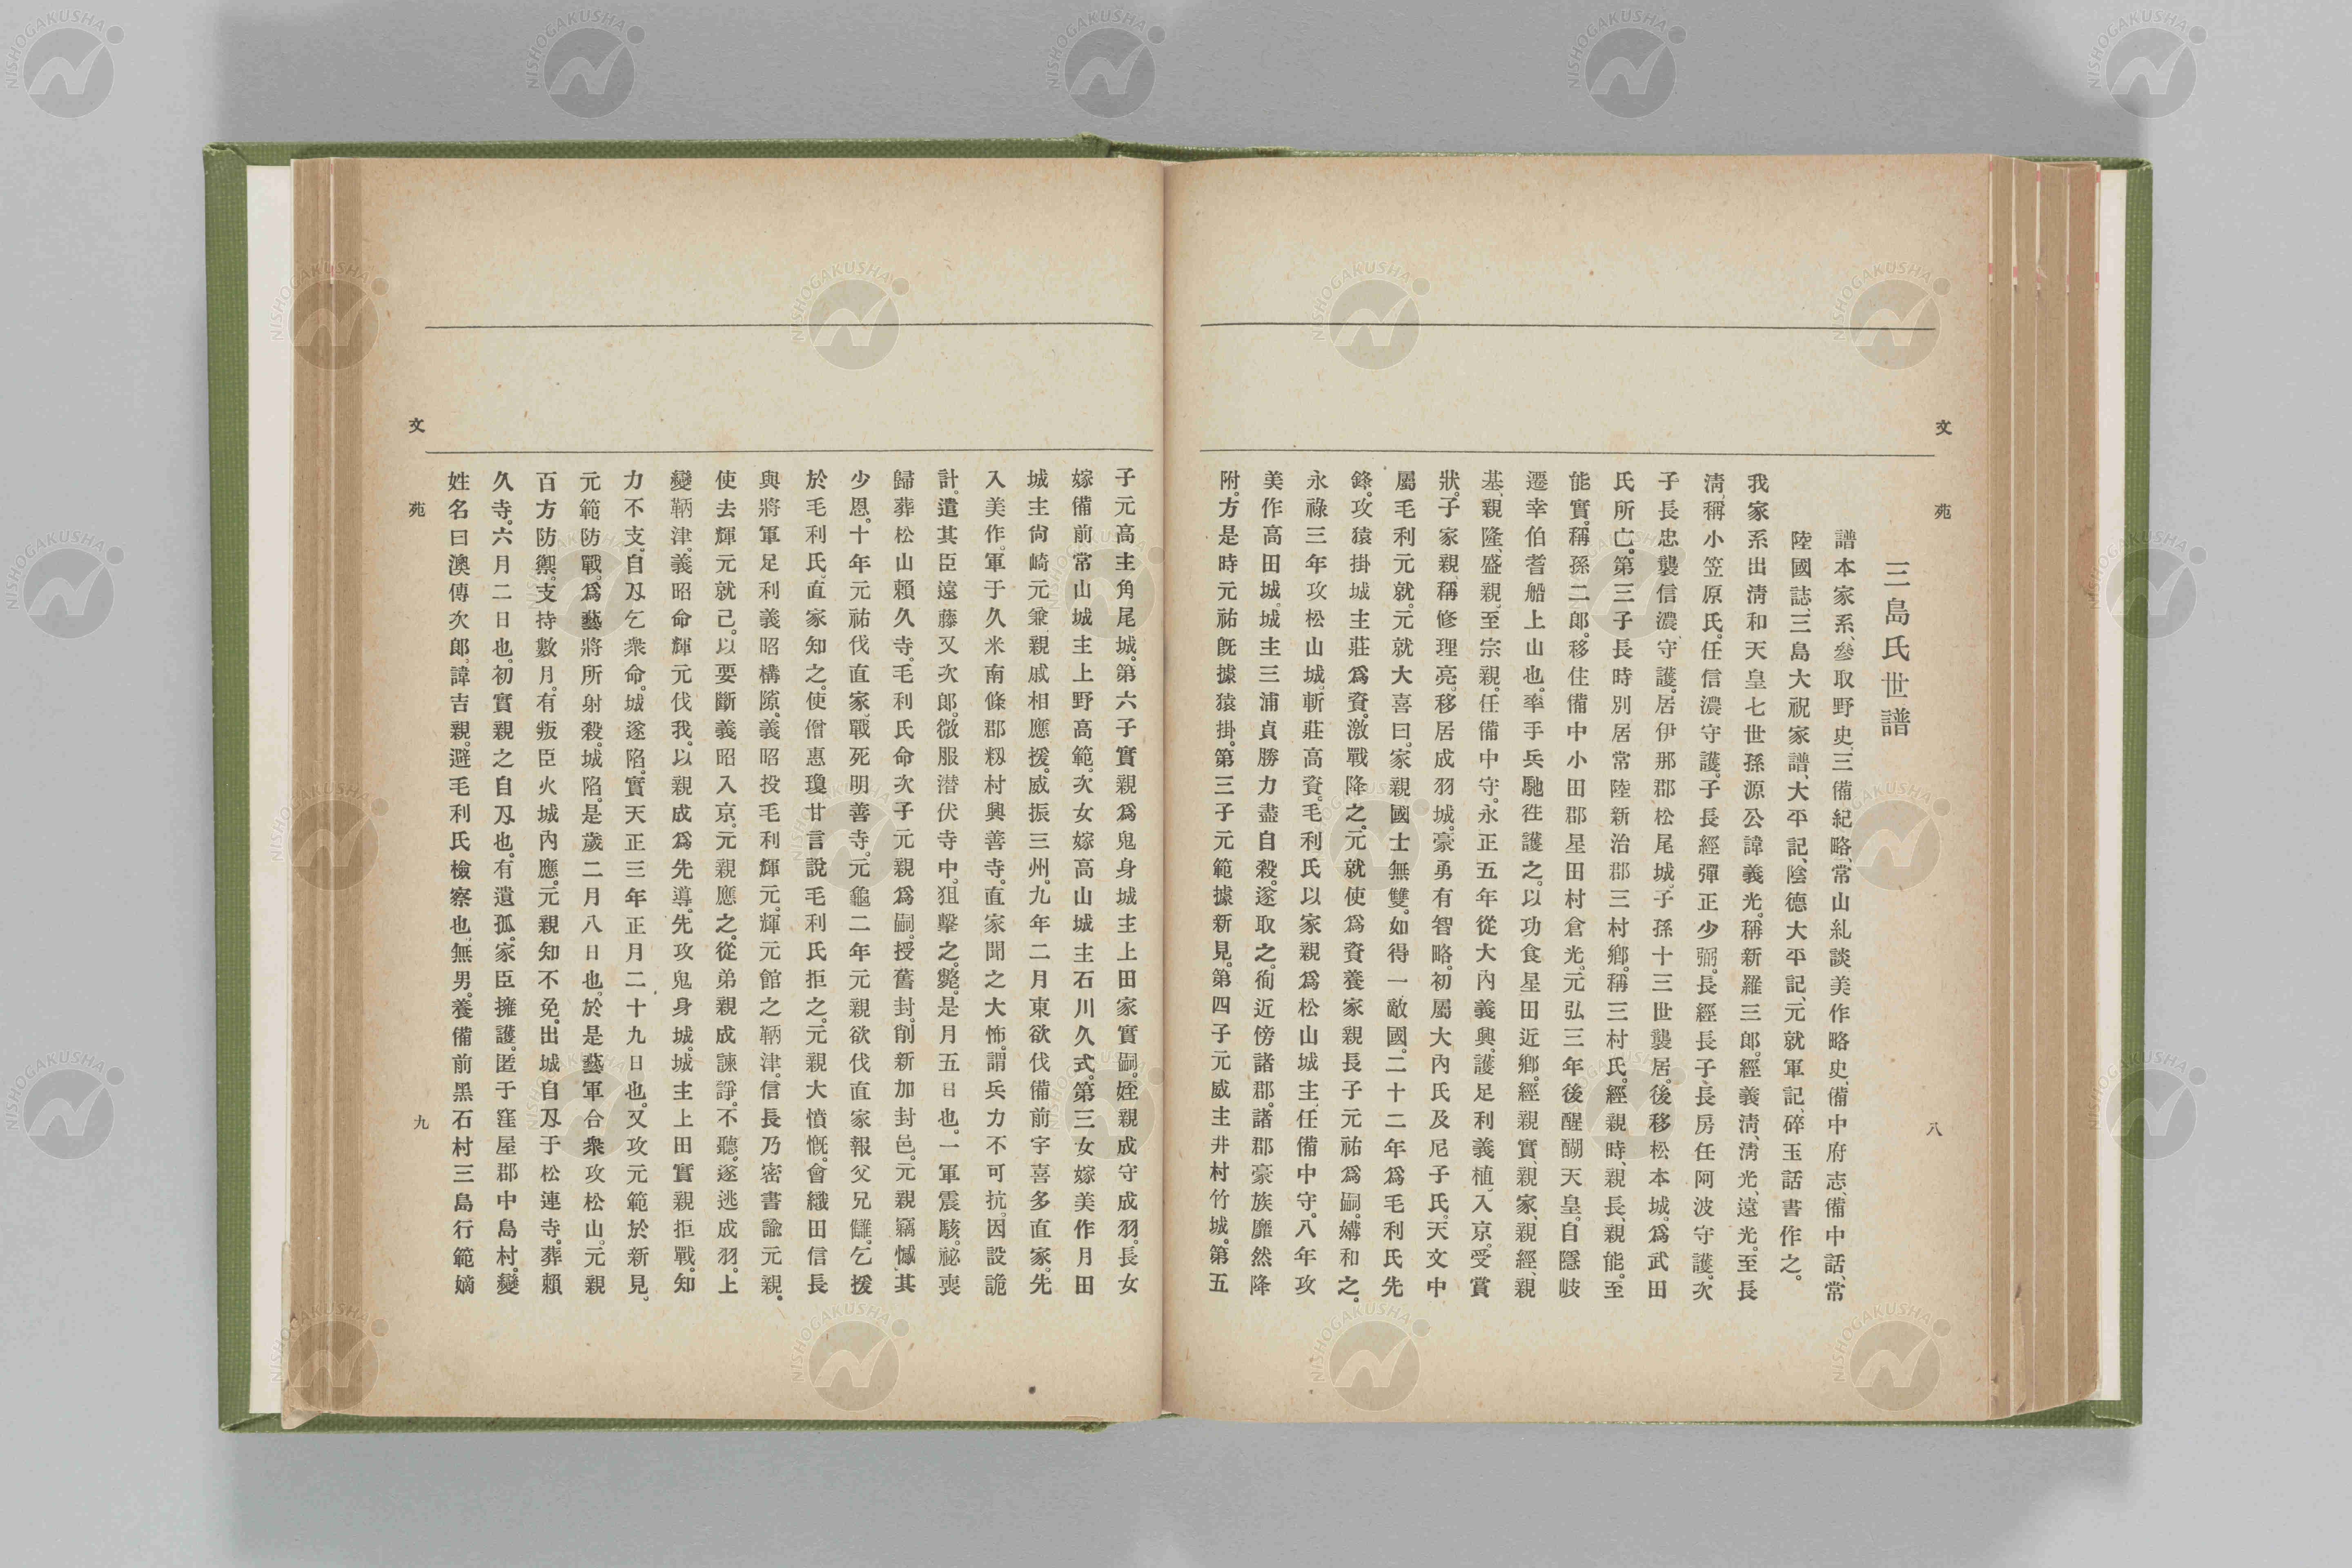 文
苑
八
三島氏世譜
譜本家系、參取野史、三備紀略、常山紀談美作略史、備中府志、備中話、常
陸國誌、三島大祝家譜、大平記、陰德大平記、元就軍記、碎玉話書作之。
我家系出淸和天皇七世孫源公諱義光。稱新羅三郎。經義淸、淸光、遠光。至長
淸、稱小笠原氏。任信濃守護。子長經彈正少弼。長經長子、長房任阿波守護。次
子長忠襲信濃守護。居伊那郡松尾城。子孫十三世襲居。後移松本城。爲武田
氏所亡。第三子長時別居常陸新治郡三村鄕。稱三村氏。經親時、親長、親能。至
能實。稱孫二郎。移住備中小田郡星田村倉光。元弘三年後醍醐天皇。自隱岐
遷幸伯耆船上山也。率手兵馳徃護之。以功食星田近鄕。經親實、親家、親經、親
基、親隆、盛親、至宗親。任備中守。永正五年從大內義興、護足利義植、入京。受賞
狀。子家親、稱修理亮。移居成羽城。豪勇有智略。初屬大內氏及尼子氏。天文中
屬毛利元就。元就大喜曰。家親國士無雙。如得一敵國。二十二年爲毛利氏先
鋒。攻猿掛城主莊爲資。激戰降之。元就使爲資養家親長子元祐爲嗣。媾和之。
永祿三年攻松山城。斬莊高資。毛利氏以家親爲松山城主、任備中守。八年攻
美作高田城。城主三浦貞勝力盡自殺。遂取之。徇近傍諸郡。諸郡豪族靡然降
附。方是時元祐旣據猿掛。第三子元範據新見。第四子元威主井村竹城。第五
子元高主角尾城。第六子實親爲鬼身城主上田家實嗣。姪親成守成羽。長女
嫁備前常山城主上野高範。次女嫁高山城主石川久式。第三女嫁美作月田
城主尙崎元兼、親戚相應援。威振三州。九年二月東欲伐備前宇喜多直家。先
入美作。軍于久米南條郡籾村興善寺。直家聞之大怖。謂兵力不可抗。因設詭
計。遣其臣遠藤又次郎。微服潛伏寺中。狙擊之。斃。是月五日也。一軍震駭。祕喪
歸葬松山賴久寺。毛利氏命次子元親爲嗣。授舊封。削新加封邑。元親竊憾、其
少恩。十年元祐伐直家、戰死明善寺。元龜二年元親欲伐直家報父兄讎。乞援
於毛利氏。直家知之。使僧惠瓊甘言說毛利氏拒之。元親大憤慨。會織田信長
與將軍足利義昭構隙。義昭投毛利輝元。輝元館之鞆津。信長乃密書諭元親。
使去輝元就己。以要斷義昭入京。元親應之。從弟親成諫諍。不聽。遂逃成羽。上
變鞆津。義昭命輝元伐我。以親成爲先導。先攻鬼身城。城主上田實親拒戰。知
力不支。自刄乞衆命。城遂陷。實天正三年正月二十九日也。又攻元範於新見。
元範防戰。爲藝將所射殺。城陷。是歲二月八日也。於是藝軍合衆攻松山。元親
百方防禦。支持數月。有叛臣火城內應。元親知不免。出城自刄于松連寺。葬賴
久寺。六月二日也。初實親之自刄也。有遺孤。家臣擁護。匿于窪屋郡中島村。變
姓名曰澳傳次郎、諱吉親。避毛利氏檢察也。無男。養備前黑石村三島行範嫡
文
苑
九